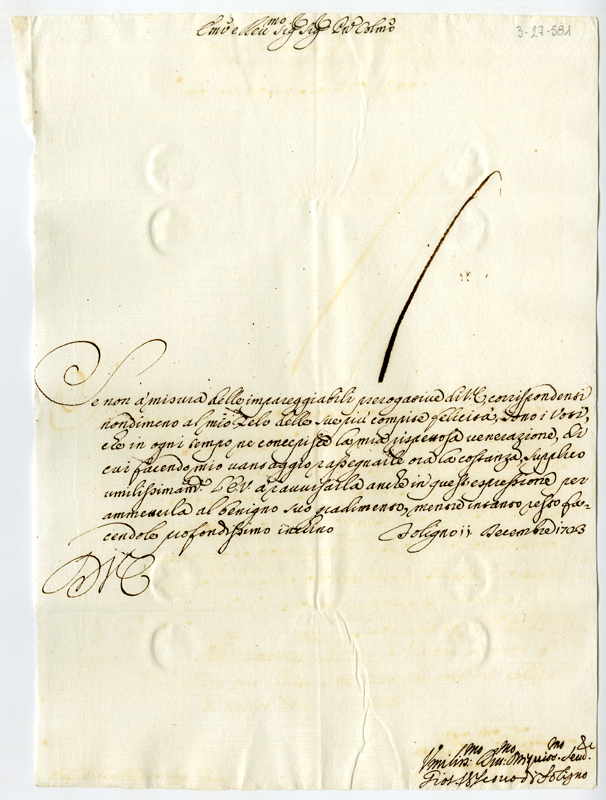 Em.o e Reu.mo Sig.r Sig.r P.ne Colmo
3-27-581
Se non a misura delle impareggiabili prerogatiue di V.E. corrispondenti
nondimeno al mio Zelo delle sue più compite felicità, sono i Voti,
che in ogni tempo ne concepisce la mia rispettosa venerazione, di
cui facendo mio vantaggio rassegnarle ora la costanza, supplico
umilissimam.te l'E.V. a rauuisarla anche in quest'espressione per
ammetterla al benigno suo gradimento, mentre intanto resto fa-
cendole profondissimo inchino Foligno 11 Decembre 1703
D V E
Vmiliss.mo Diu.mo
Vescouo di Foligno